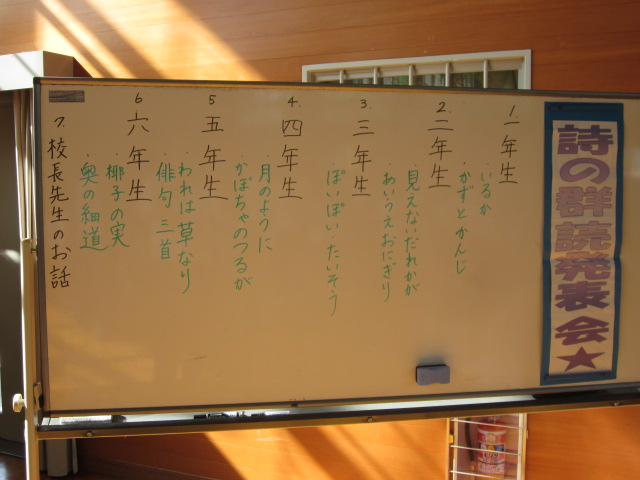 詩の群読発表会★
1. 一年生
・いるか
・かずとかんじ
2. 二年生
・見えないだれかが
・あいうえおにぎり
3. 三年生
・ぽいぽいたいそう
4. 四年生
・月のように
5. 五年生
・かぼちゃのつるが
・われは草なり
6 六年生
・俳句 三首
・椰子の実
・奥の細道
7. 校長先生のお話